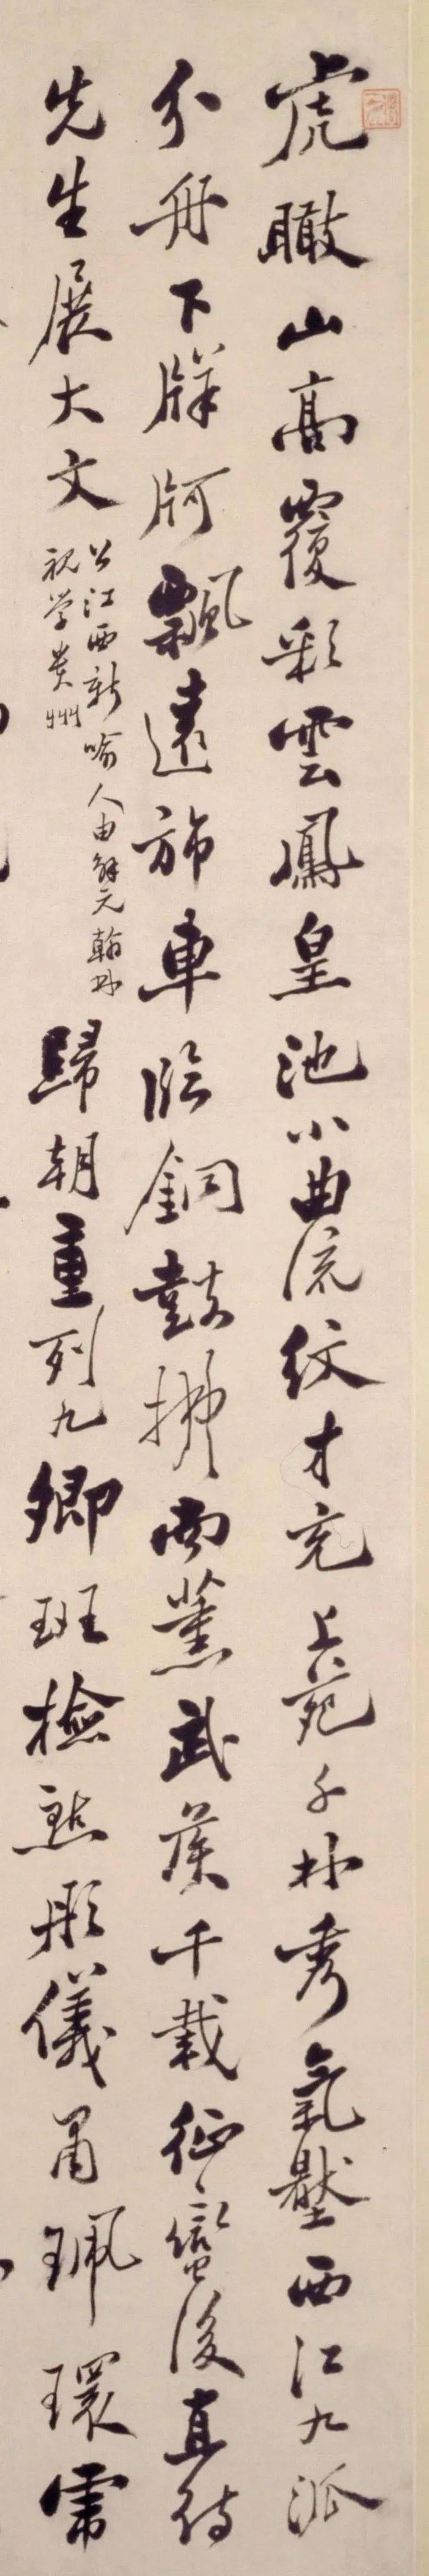 虎瞰山高覆彩雲鳳皇池小曲流紋才充上苑千林秀氣壓西江九派
分舟下牂牁飄遠斾車臨銅鼓拂南薰武侯千載征蠻後直待
先生展大文
公江西新喻人由解元翰林
視學貴州
歸朝重列九卿班檢點彤儀肅珮環需